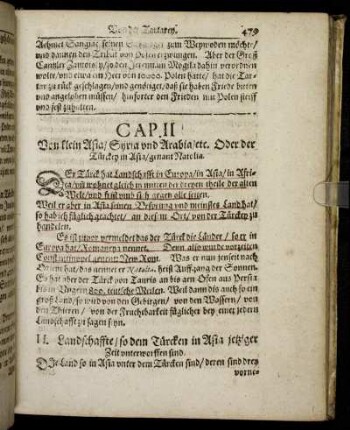 Von der Tartarey. 479
Achmet Sangiac seinen zum Weywoden möchte/
und dannen den Tribut von Polen erzwingen. Aber der Groß
Cantzler Zamois y/so den Jeremiam Mogila dahin verordnen
wolte/und etwa ein Heer von 10000. Polen hatte/ hat die Tar-
tar zu rück geschlagen/und genötiget/daß sie haben Friede bitten
und angeloben müssen/ hinforter den Frieden mit Polen steiff
und fest zuhalten.
CAP. II
Von klein Asia/ Syria und Arabia/ etc. Oder der
Türckey in Asia/genant Natolia.
DEr Türck hat Landschafft in Europa/in Asia/ in Afri-
ca/und wohnet gleich in mitten der dreyen theile der alten
Welt/und frist umb sich gegen alle seiten.
Weil er aber in Asia seinen Ursprung und meistes Land hat/
so hab ich füglich geachtet/ an diesem Ort/ von der Türckey zu
handelen.
Es ist zuvor vermeldet das der Türck die Länder / so er in
Europa hat/Romaniya nennet. Denn also wurde vorzeiten
Constantinopel genent New Rom. Was er nun jenseit nach
Osten hat/das nennet er Natolia, heist Auffgang der Sonnen.
Es hat aber der Türck von Tauris an bis gen Ofen aus Persia
bis in Ungern 800. teutsche Meilen. Weil dann dis auch so ein
groß Land/ so wird von den Gebirgen/ von den Wassern/ von
den Thieren / von der Fruchtbarkeit füglicher bey einer jedern
Landschafft zu sagen seyn.
II. Landschaffte/ so dem Türcken in Asia jetziger
Zeit unterworffen sind.
DIe Land so in Asia unter dem Türcken sind/ deren sind drey
vorne-